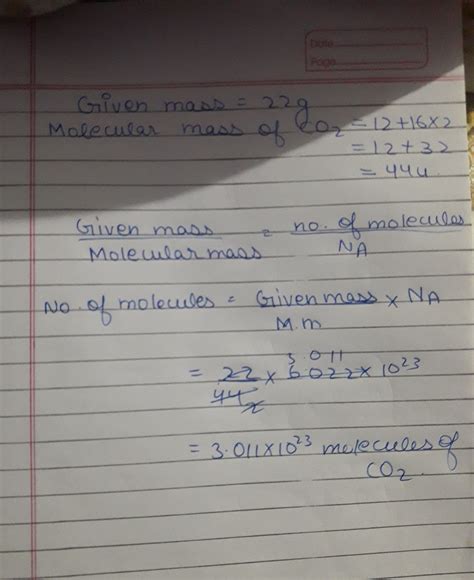 Date
Page
Given mass = 22g
Molecular mass of CO2 = 12+16×2
= 12+32
= 44u
Given mass / Molecular mass = no. of molecules / NA
No. of molecules = Given mass / M.m × NA
3.011
= 22 / 44 2 × 6.022 × 10^23
= 3.011×10^23 molecules of
CO2.